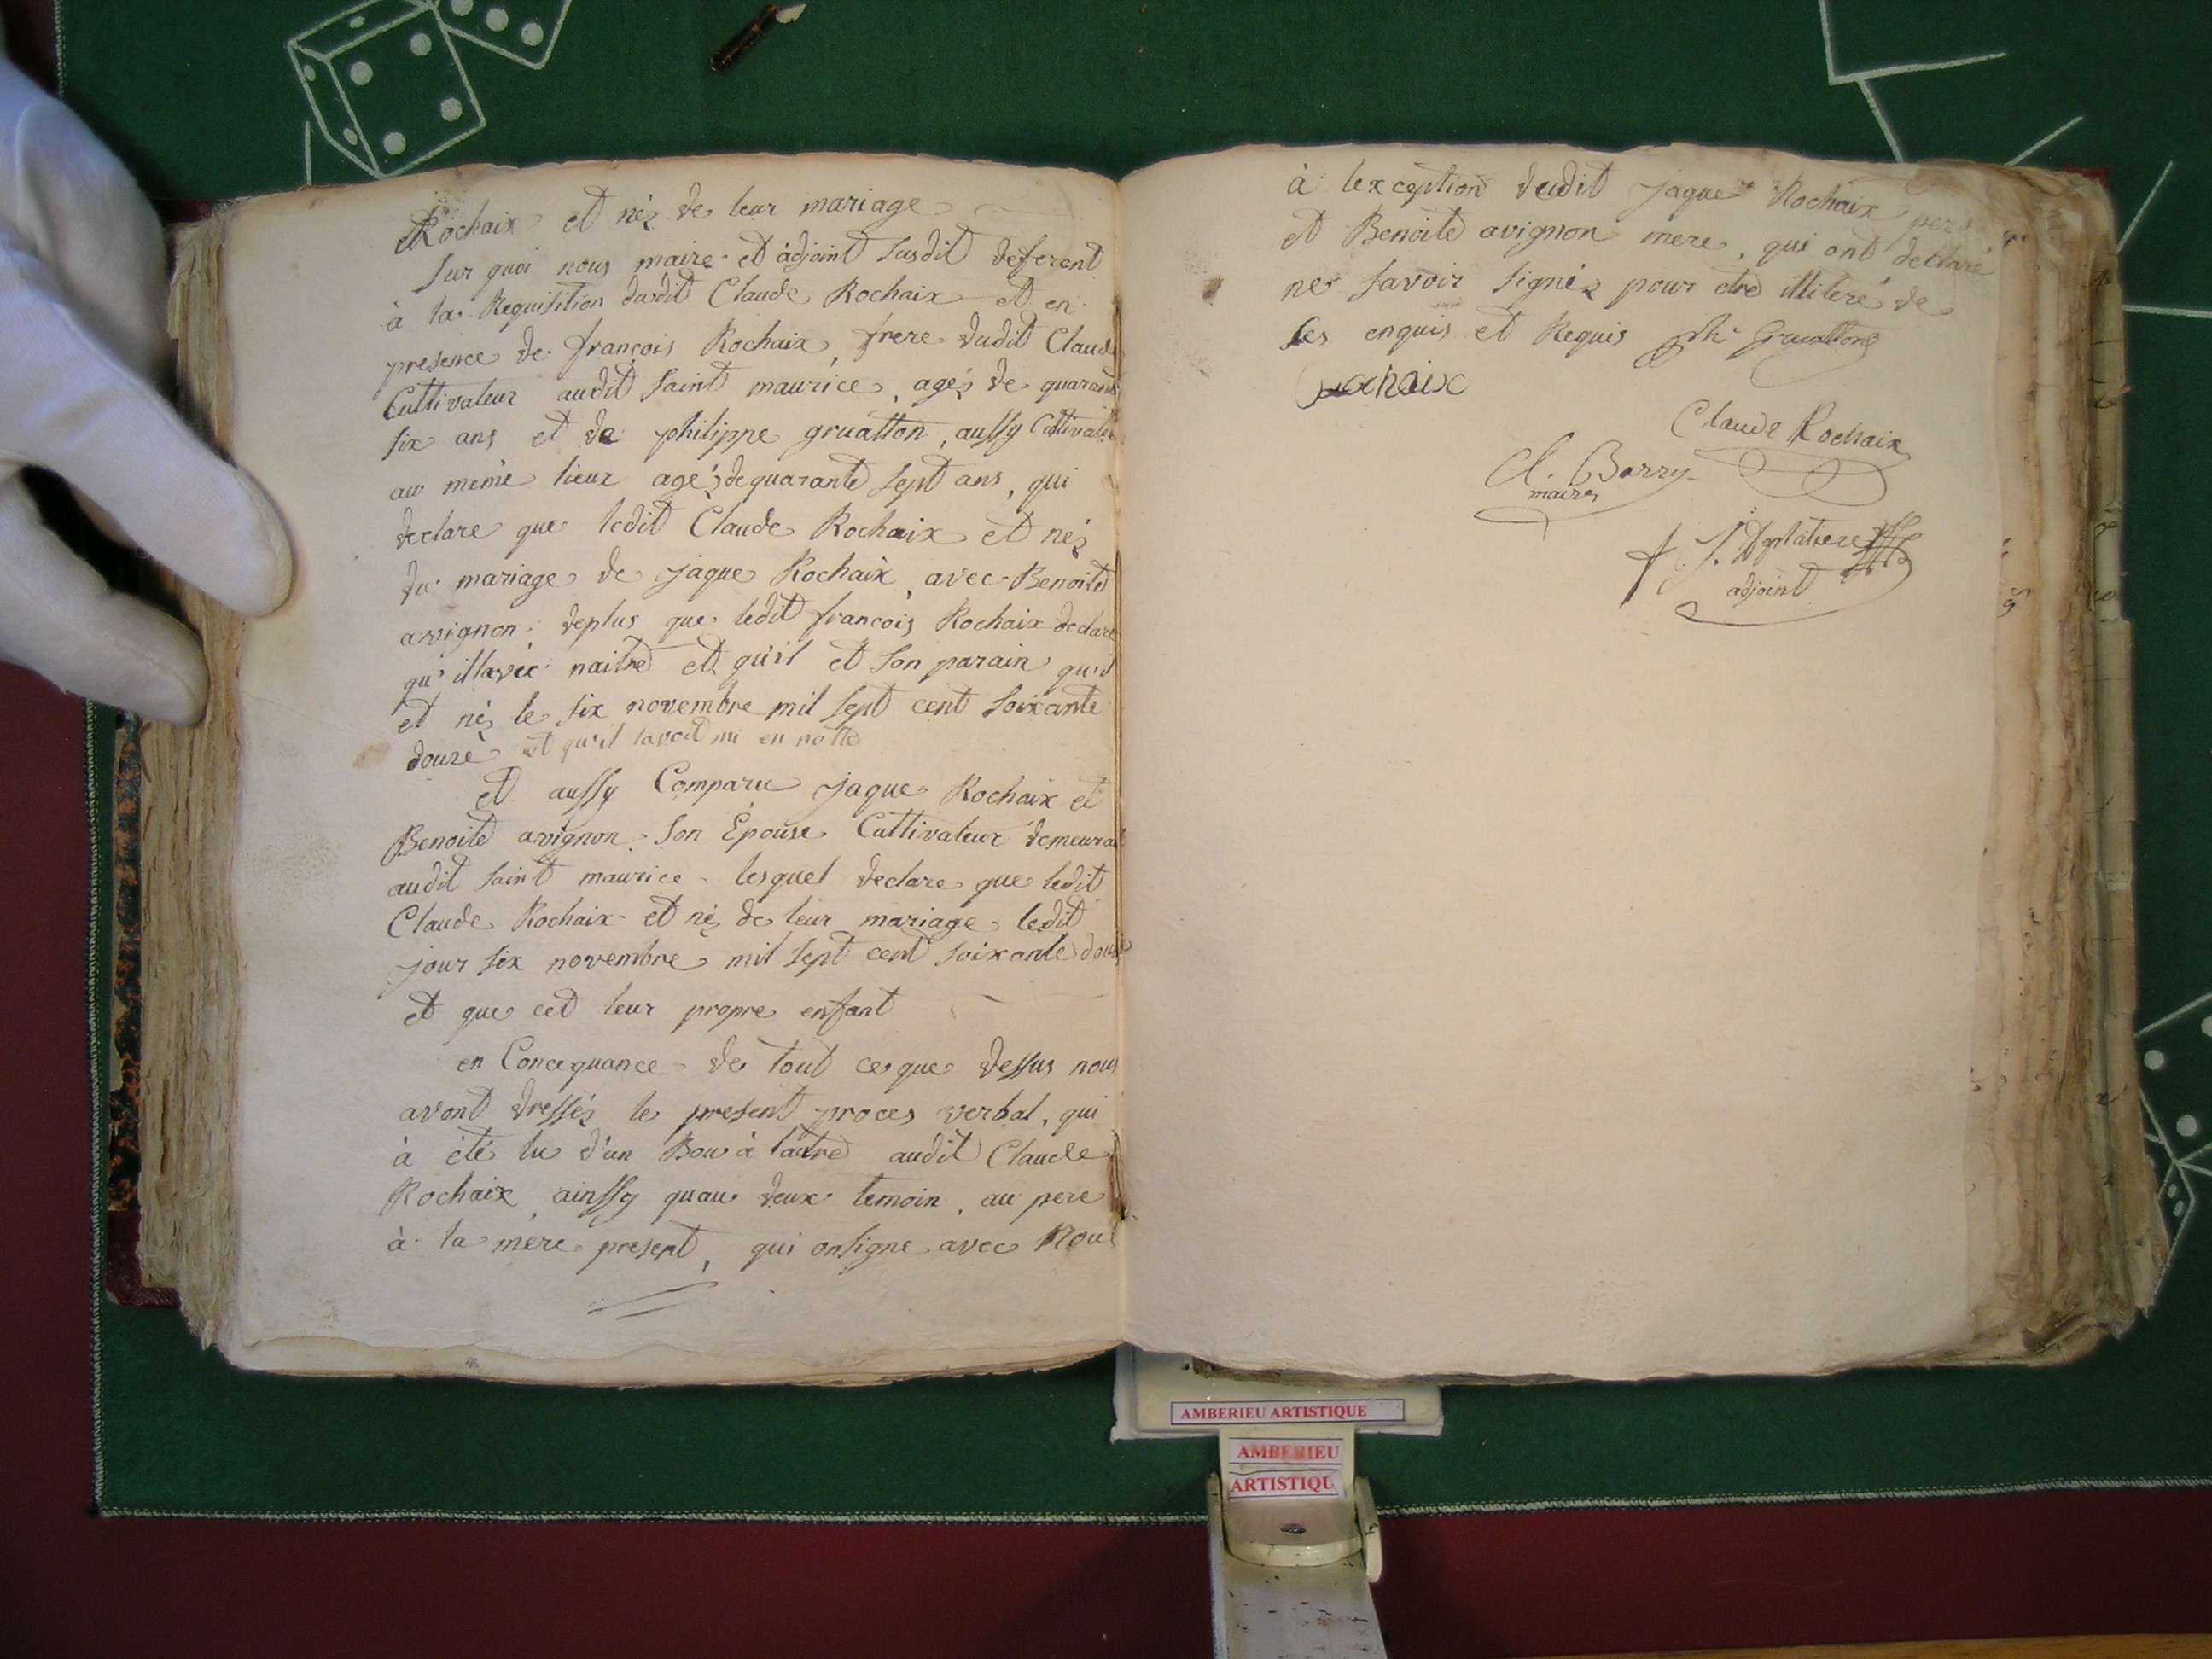 Rochaix et néz de leur mariage
Sur quoi nous maire et adjoint susdit deferent
à la Requisition dudit Claude Rochaix et en
presence de françois Rochaix, frere dudit Claude
Cultivateur audit saint maurice, agéz de quarante
six ans et de philippe gruatton, aussy Cultivateur
au même lieux agéz de quarante sept ans, qui
declare que ledit Claude Rochaix et néz
du mariage de jaque Rochaix, avec Benoite
avignon, deplus que ledit francois Rochaix declare
naitre et qu'il et son parain qu'il
et néz le six novembre mil sept cent soixante
douze et qu'il lavoit mi en notte
et aussy Comparu jaque Rochaix et
Benoite avignon son Épouse Cultivateur demeurant
audit saint maurice lesquel declare que ledit
Claude Rochaix et néz de leur mariage ledit
jour six novembre mil sept cent soixante douze
et que cet leur propre enfant
en Concequance de tout ce que dessus nous
avont dresséz le present proces verbal, qui
à été lu d'un Bou à lautre audit Claude
Rochaix, ainssy quau deux temoin, au pere
à la mere present, qui onsigne avec Nous
à lexception dudit jaque Rochaix pere
et Benoite avignon mere, qui ont declaré
ne savoir signéz pour etre illiteré de
ses enquis et Requis phi Gruatton
Rochaix
Claude Rochaix
Cl. Barry
maire
adjoint
AMBERIEU ARTISTIQUE
AMBERIEU
ARTISTIQU